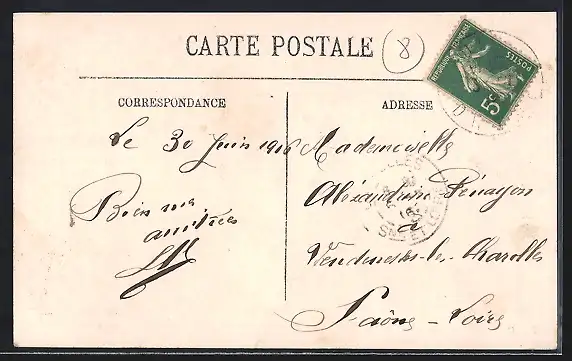 CARTE POSTALE
8
RÉPUBLIQUE FRANÇAISE
POSTES
5c
CORRESPONDANCE
ADRESSE
Le 30 Juin 1916
Bien mes
amitiés
Mademoiselle
Alexandrine
à
Vendenesse-les-Charolles
Saône-Loire